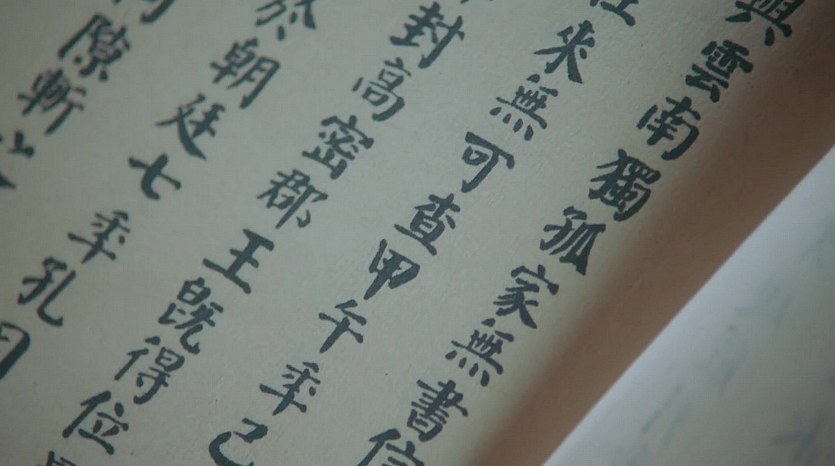 與雲南獨孤家無書信
往來無可查甲午年己
封高密郡王既得位
於朝廷七年孔
隙斬